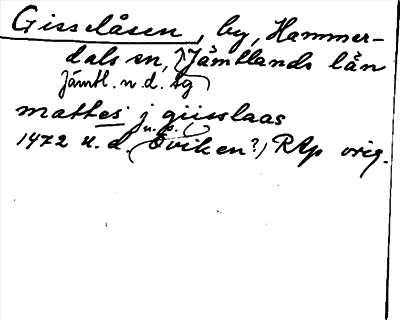 Gisselåsen, by, Hammer-
dals sn, Jämtlands län
Jämtl. n. d. tg
mattes j giisslaas
u. p.
1472 u. d. (Oviken?) RAp orig.